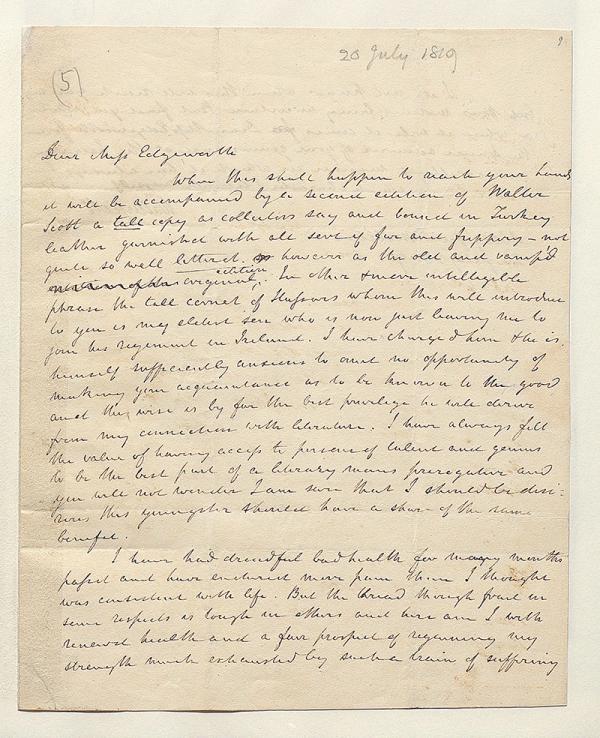 9
20 July 1819
(5)
Dear Miss Edgeworth
When this shall happen to reach your hands
it will be accompanied by a second edition of Walter
Scott a tall copy as collectors say and bound in Turkey
leather garnished with all sorts of fur and frippery – not
quite so well lettered however as the old and vamp'd
original edition. In other & more intelligible
phrase the tall cornet of Hussars whom this will introduce
to you is my eldest son who is now just leaving me to
join his regiment in Ireland. I have charged him & he is
himself sufficiently anxious to omit no opportunity of
making your acquaintance as to be known to the good
and the wise is by far the best privilege he will derive
from my connection with literature. I have always felt
the value of having access to persons of talent and genius
to be the best part of a literary mans prerogative and
you will not wonder I am sure that I should be desi-
rous this youngster should have a share of the same
benefit.
I have had dreadful bad health for many months
passd and have endured more pain than I thought
was consistent with life. But the thread though frail in
some respects is tough in others and here am I with
renewd health and a fair prospect of regaining my
strength much exhausted by such a train of suffering